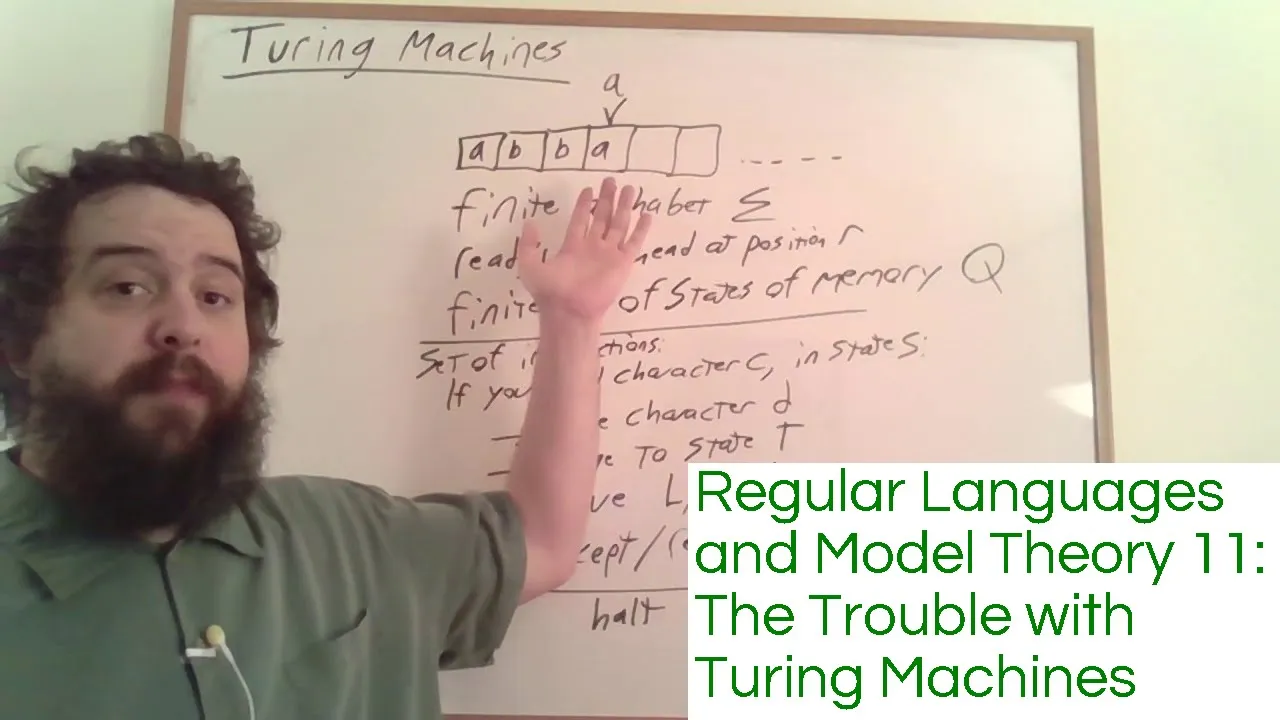 Turing Machines
a
a b b a
finite habet Σ
read head at position r
finite of States of memory Q
Set of in ctions:
If you character c, in state S:
e character d
e To State T
ve L,
cept/re
halt
Regular Languages
and Model Theory 11:
The Trouble with
Turing Machines